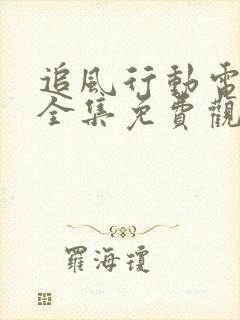 追風行動電
全集免費觀
羅海瓊